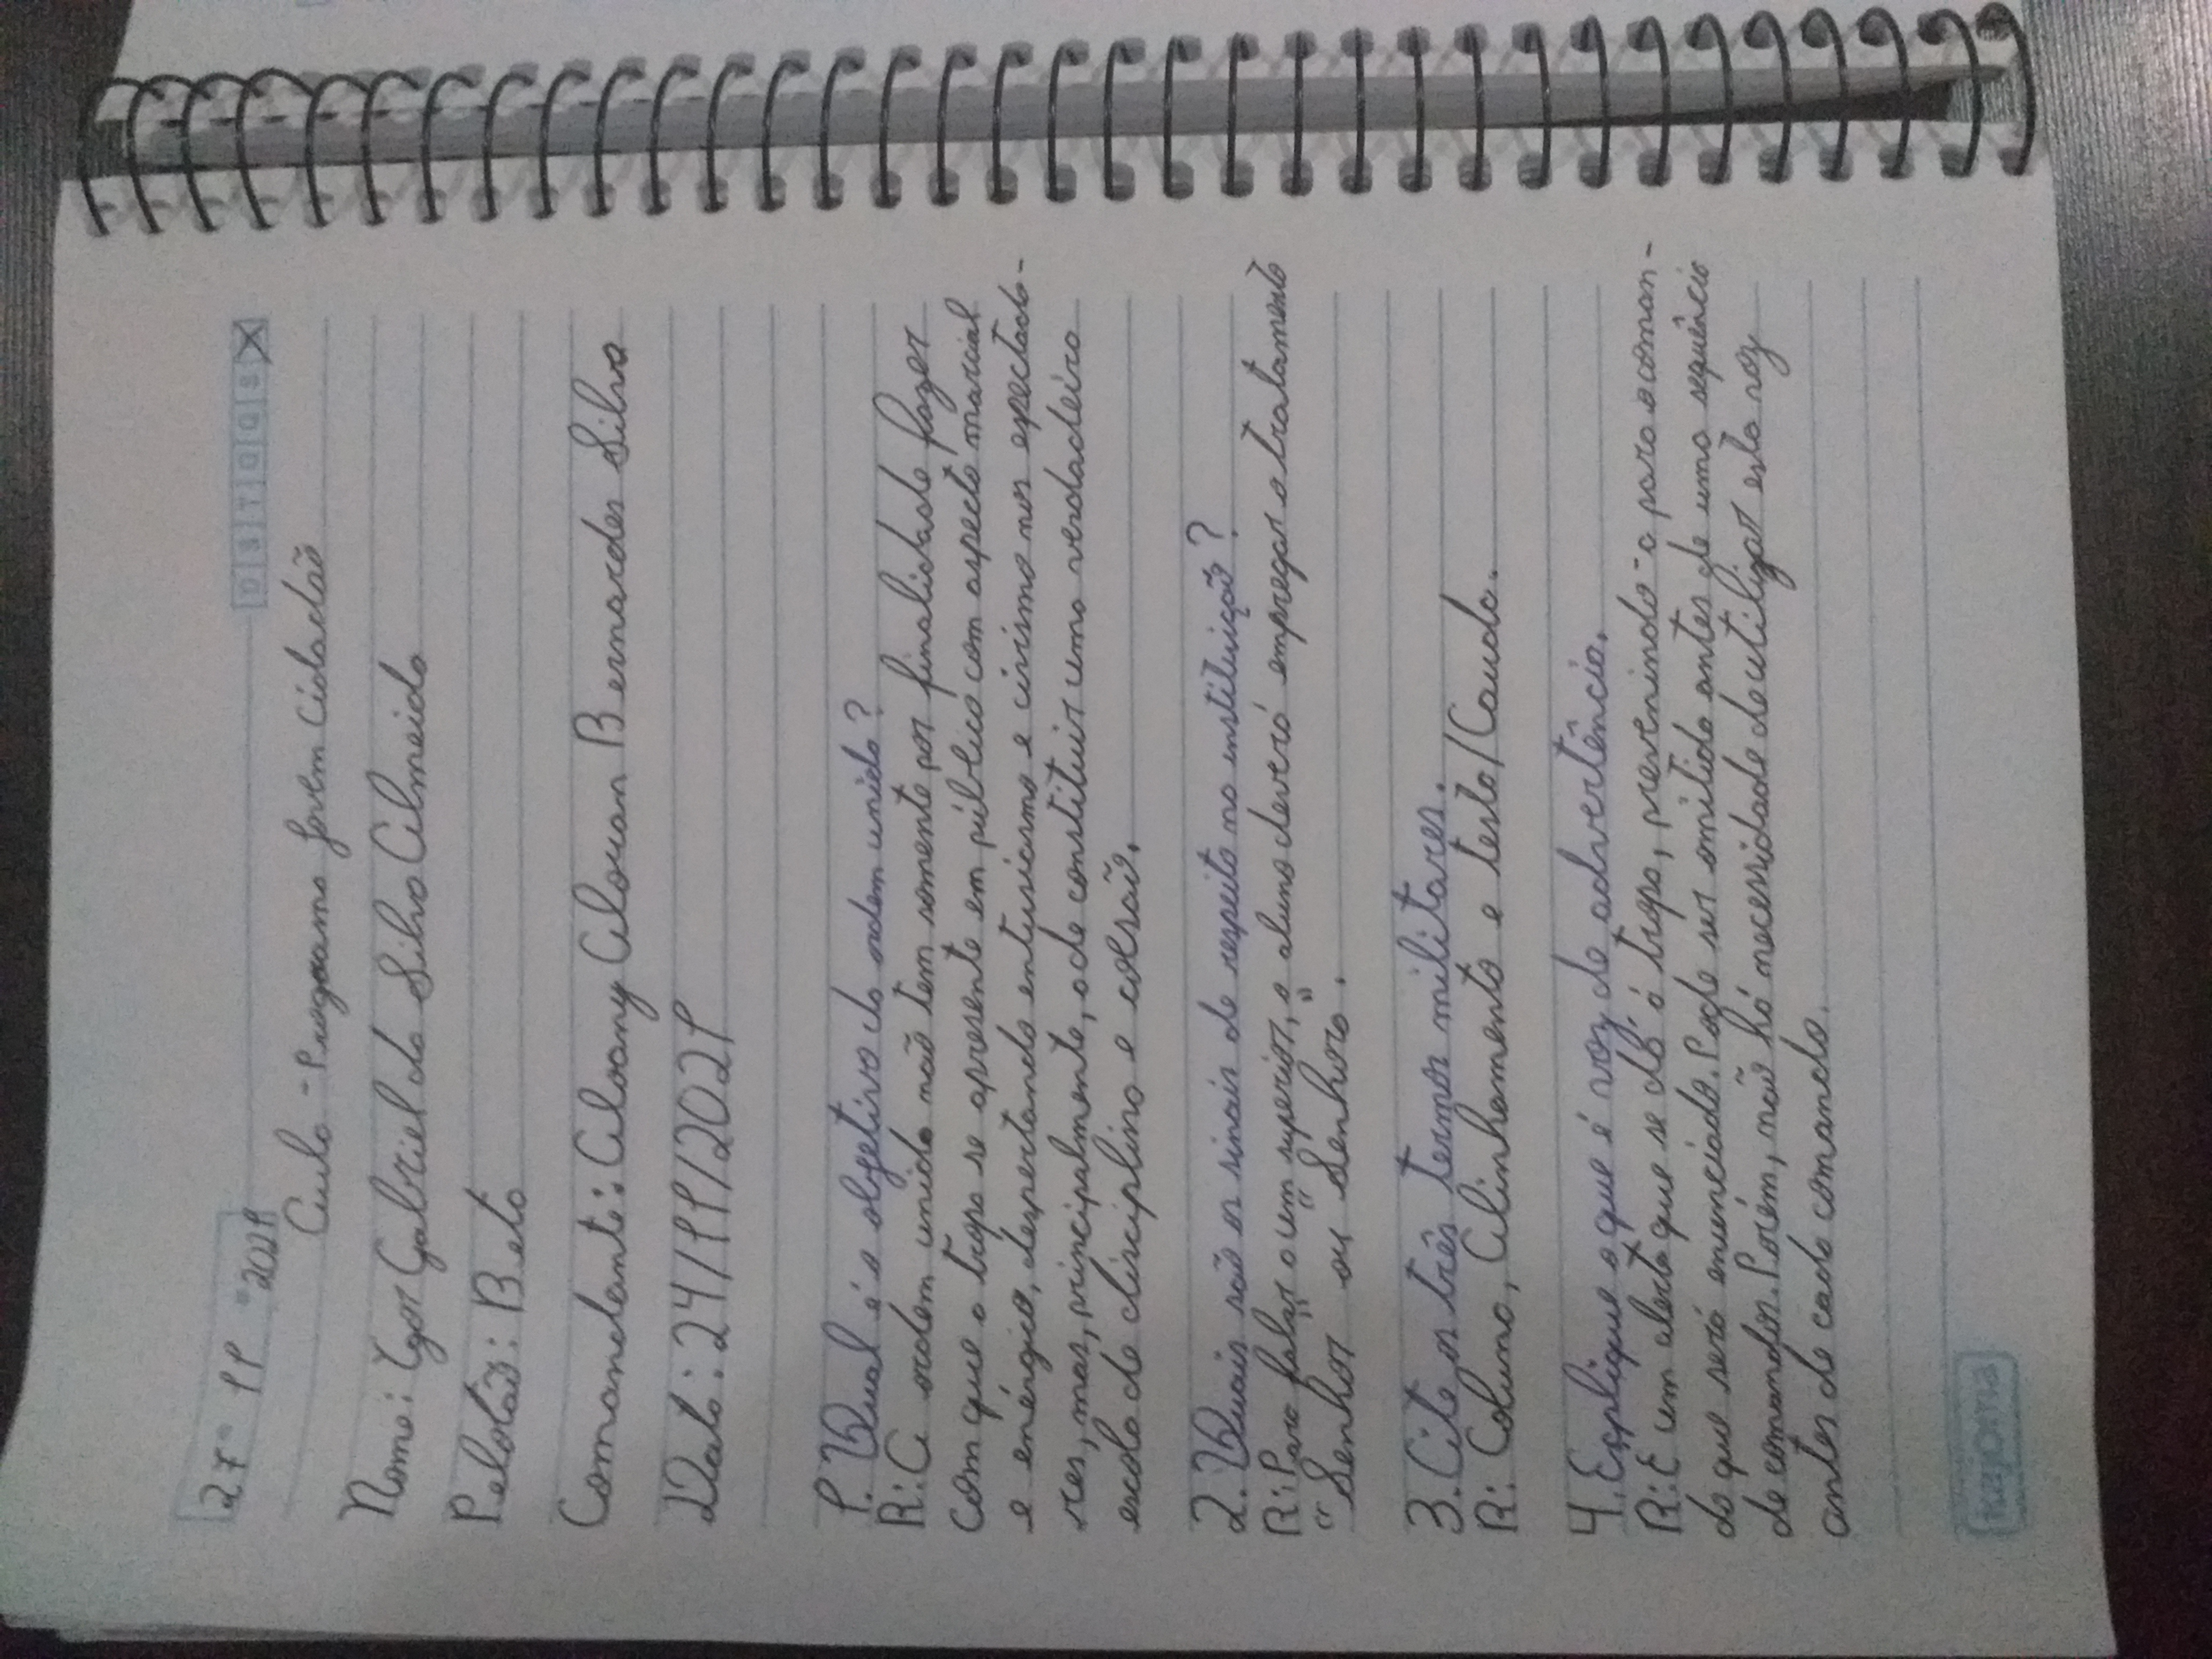 27 11 2021
D S T Q Q S X
Aula - Programa Jovem Cidadão
Nome: Ygor Gabriel da Silva Almeida
Pelotão: Beta
Comandante: Aloany Aloran Bernardes Silva
Data: 24/11/2021
1. Qual é o objetivo da ordem unida?
R: A ordem unida não tem somente por finalidade fazer
com que a tropa se apresente em público com aspecto marcial
e enérgico, despertando entusiasmo e civismo nos espectado-
res, mas, principalmente, a de constituir uma verdadeira
escola de disciplina e coesão.
2. Quais são os sinais de respeito na instituição?
R: Para falar a um superior, o aluno deverá empregar o tratamento
"Senhor" ou "Senhora".
3. Cite os três termos militares.
R: Coluna, Alinhamento e testa/Cauda.
4. Explique o que é voz de advertência.
R: É um alerta que se dá à tropa, prevenindo-a para o coman-
do que será enunciado. Pode ser omitido antes de uma sequência
de comandos. Porém, não há necessidade de utilizar esta voz
antes de cada comando.
kajoma